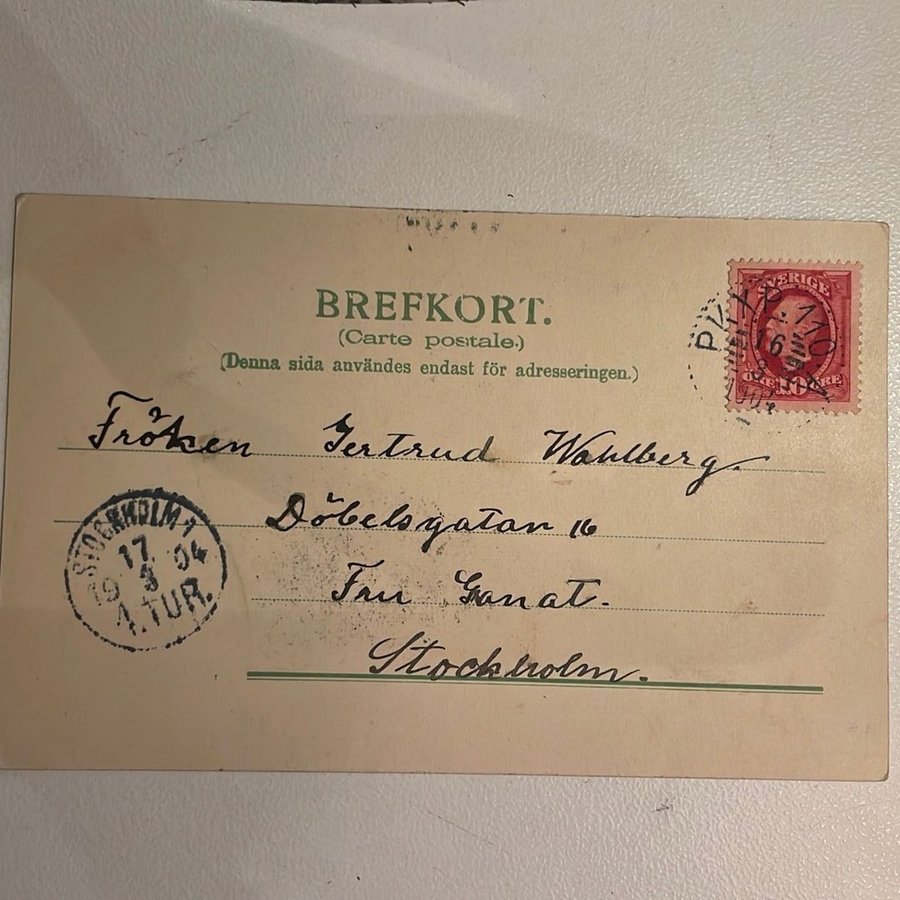 BREFKORT.
(Carte postale.)
(Denna sida användes endast för adresseringen.)
SVERIGE
PKXP. 110
16 3
1904
ÖRE 10 ÖRE
Fröken Gertrud Wahlberg.
Döbelsgatan 16
Fru Ganat.
Stockholm.
STOCKHOLM 1
17
19 3 04
1. TUR.